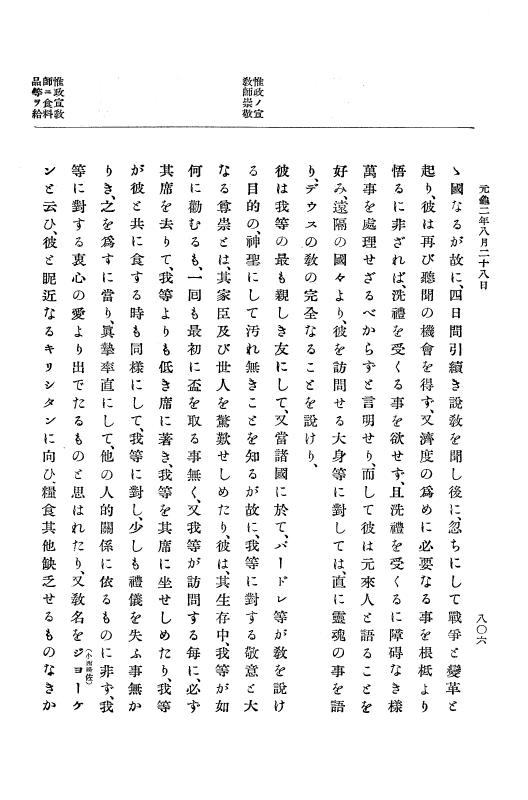 元龜二年八月二十八日
八〇六
惟政ノ宣
敎師崇敬
惟政宣敎
師ニ食料
品等ヲ給
ヽ國なるが故に、四日間引續き說敎を聞し後に、忽ちにして戰爭と變革と
起り、彼は再び聽聞の機會を得ず、又濟度の爲めに必要なる事を根柢より
悟るに非ざれば、洗禮を受くる事を欲せず、且洗禮を受くるに障碍なき樣
萬事を處理せざるべからずと言明せり、而して彼は元來人と語ることを
好み、遠隔の國々より、彼を訪問せる大身等に對しては、直に靈魂の事を語
り、デウスの敎の完全なることを說けり、
彼は我等の最も親しき友にして、又當諸國に於て、パードレ等が敎を說け
る目的の、神聖にして汚れ無きことを知るが故に、我等に對する敬意と大
なる尊崇とは、其家臣及び世人を驚歎せしめたり、彼は、其生存中、我等が如
何に勸むるも、一回も最初に盃を取る事無く、又我等が訪問する每に、必ず
其席を去りて、我等よりも低き席に著き、我等を其席に坐せしめたり、我等
が彼と共に食する時も同樣にして、我等に對し、少しも禮儀を失ふ事無か
りき、之を爲すに當り、眞摯率直にして、他の人的關係に依るものに非ず、我
等に對する衷心の愛より出でたるものと思はれたり、又敎名をジョーケ
（小西路佐）
ンと云ひ、彼と昵近なるキリシタンに向ひ、糧食其他缺乏せるものなきか